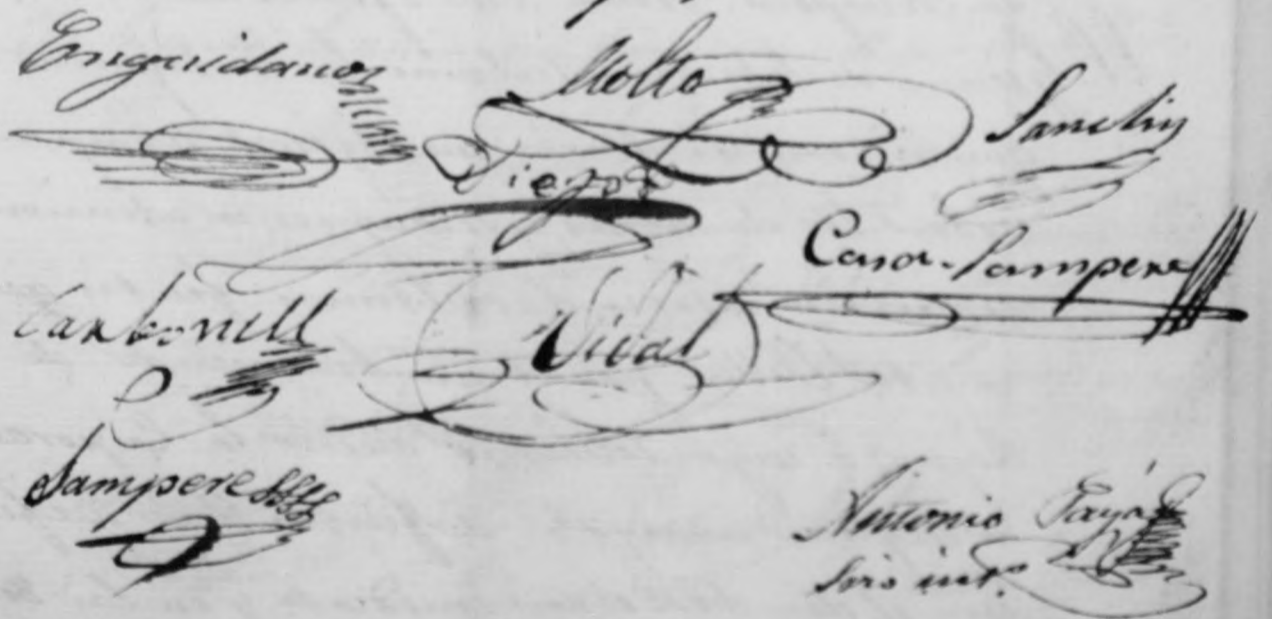 Enguidanos
Molto
Sanchiz
Diego
Casa-Sampere
Carbonell
Vidal
Sampere
Antonio Payá
Srio int.º